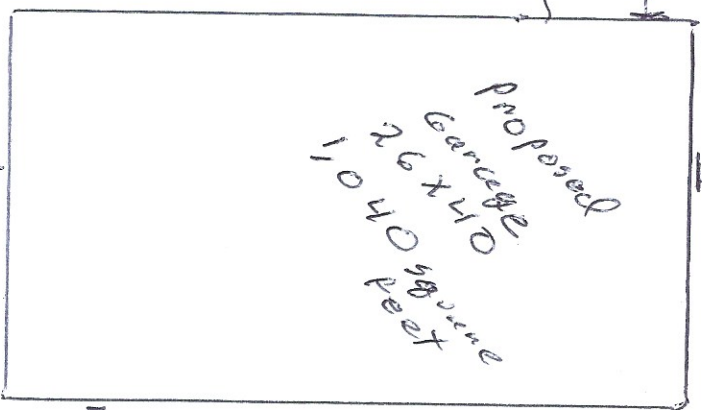 Proposed
Garage
26 x 40
1040 square
feet